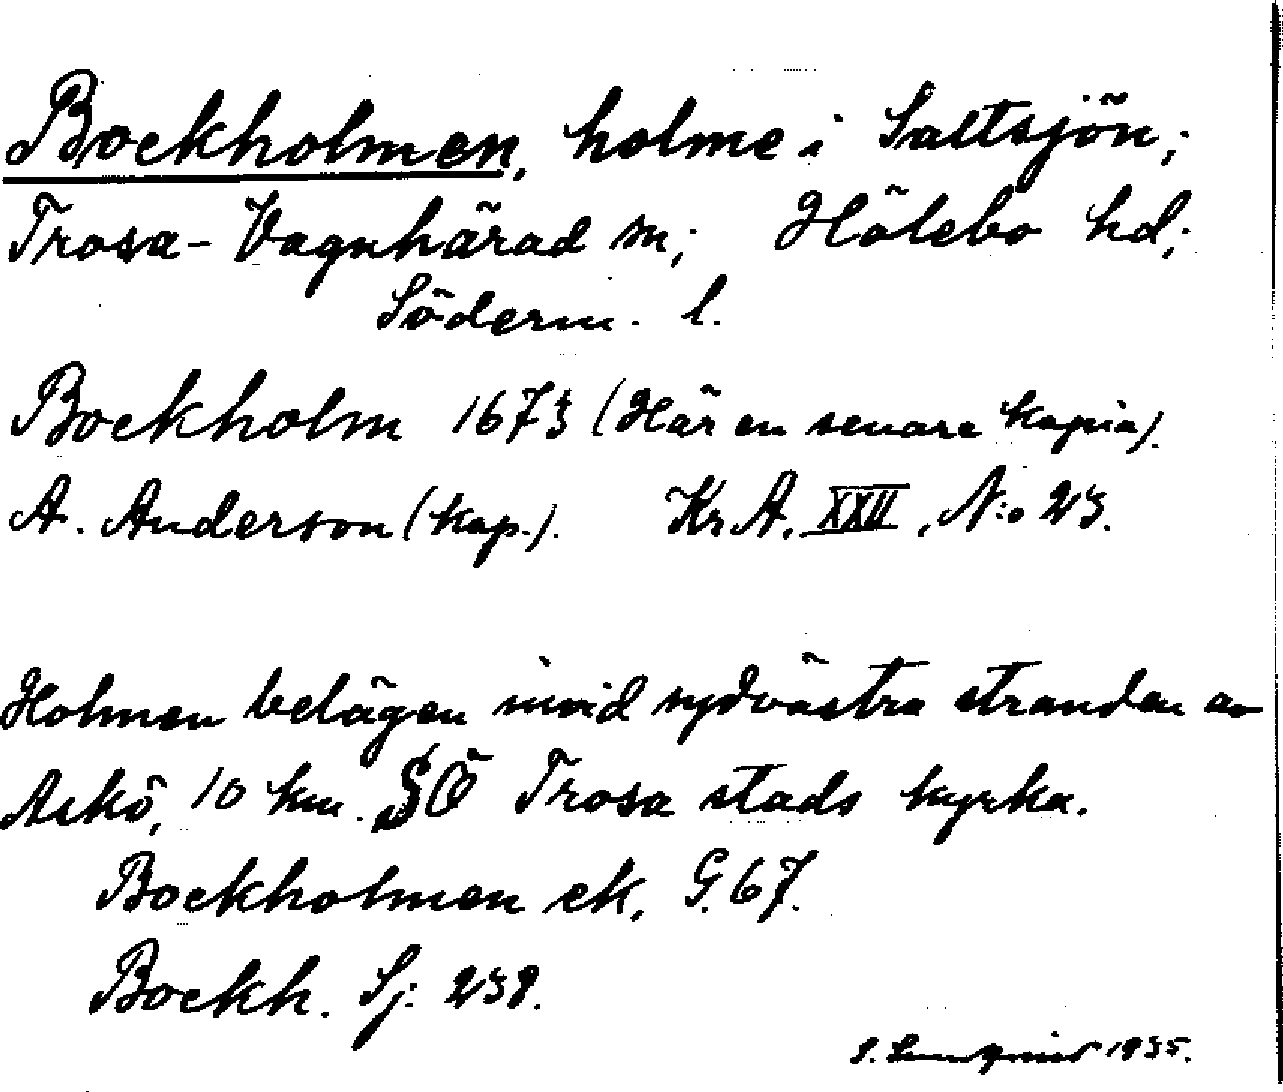 Bockholmen, holme i Saltsjön;
Trosa-Vagnhärad sn; Hölebo hd;
Söderm. l.
Bockholm 1673 (Här en senare kopia).
A. Anderson (kop.). Kr. A. XXII, N:o 23.
Holmen belägen invid sydvästra stranden av
Askö, 10 km. SÖ Trosa stads kyrka.
Bockholmen ek. G. 67.
Bockh. Sj: 239.
S. Lundqvist 1935.